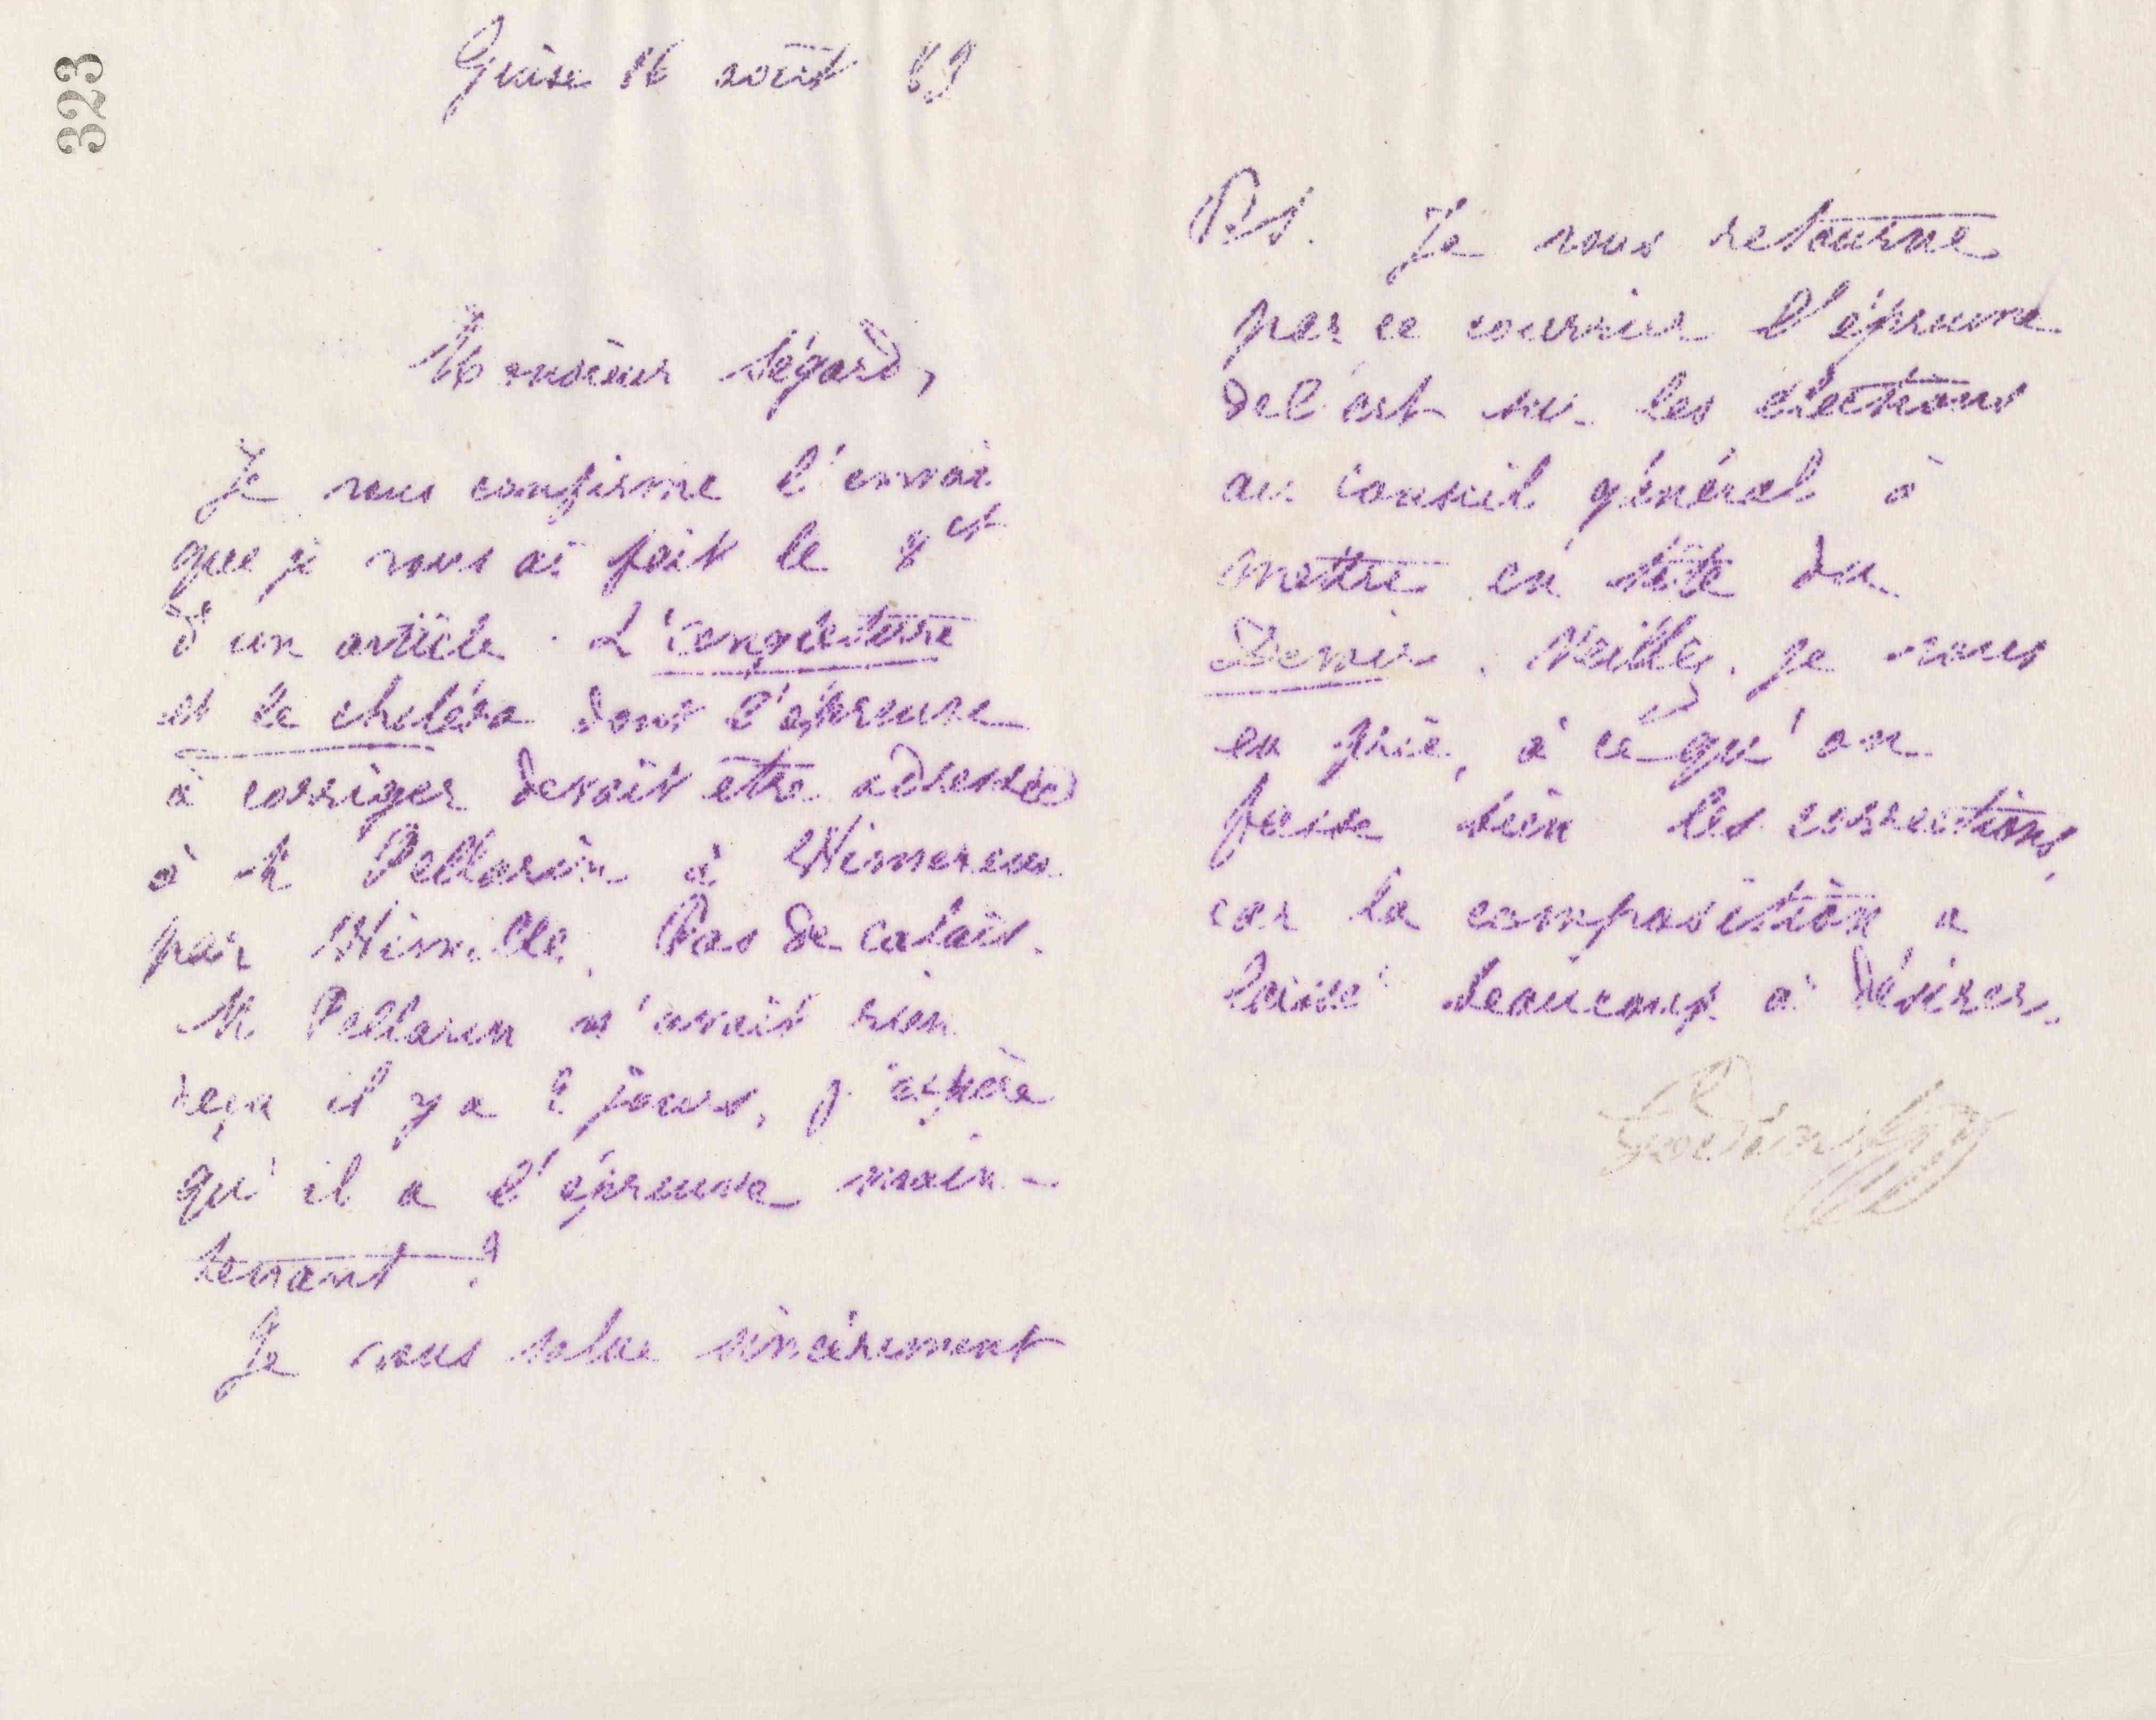 323
Guise 16 août 83
Monsieur Ségard,
Je vous confirme l'envoi
que je vous ai fait le 8 ct
d'un article : L'angleterre
et le choléra dont l'épreuve
à corriger devait être adressée
à M Pellarin à Wimereux
par Wimille, Pas de calais.
M Pellarin n'avait rien
reçu il y a 2 jours, j'espère
qu'il a l'épreuve main-
tenant ?
Je vous salue sincèrement
P.S. Je vous retourne
par ce courrier l'épreuve
de l'art sur les élections
au conseil général à
mettre en tête du
Devoir. Veillez, je vous
en prie, à ce qu'on
fasse bien les corrections,
car la composition a
laissé beaucoup à désirer.